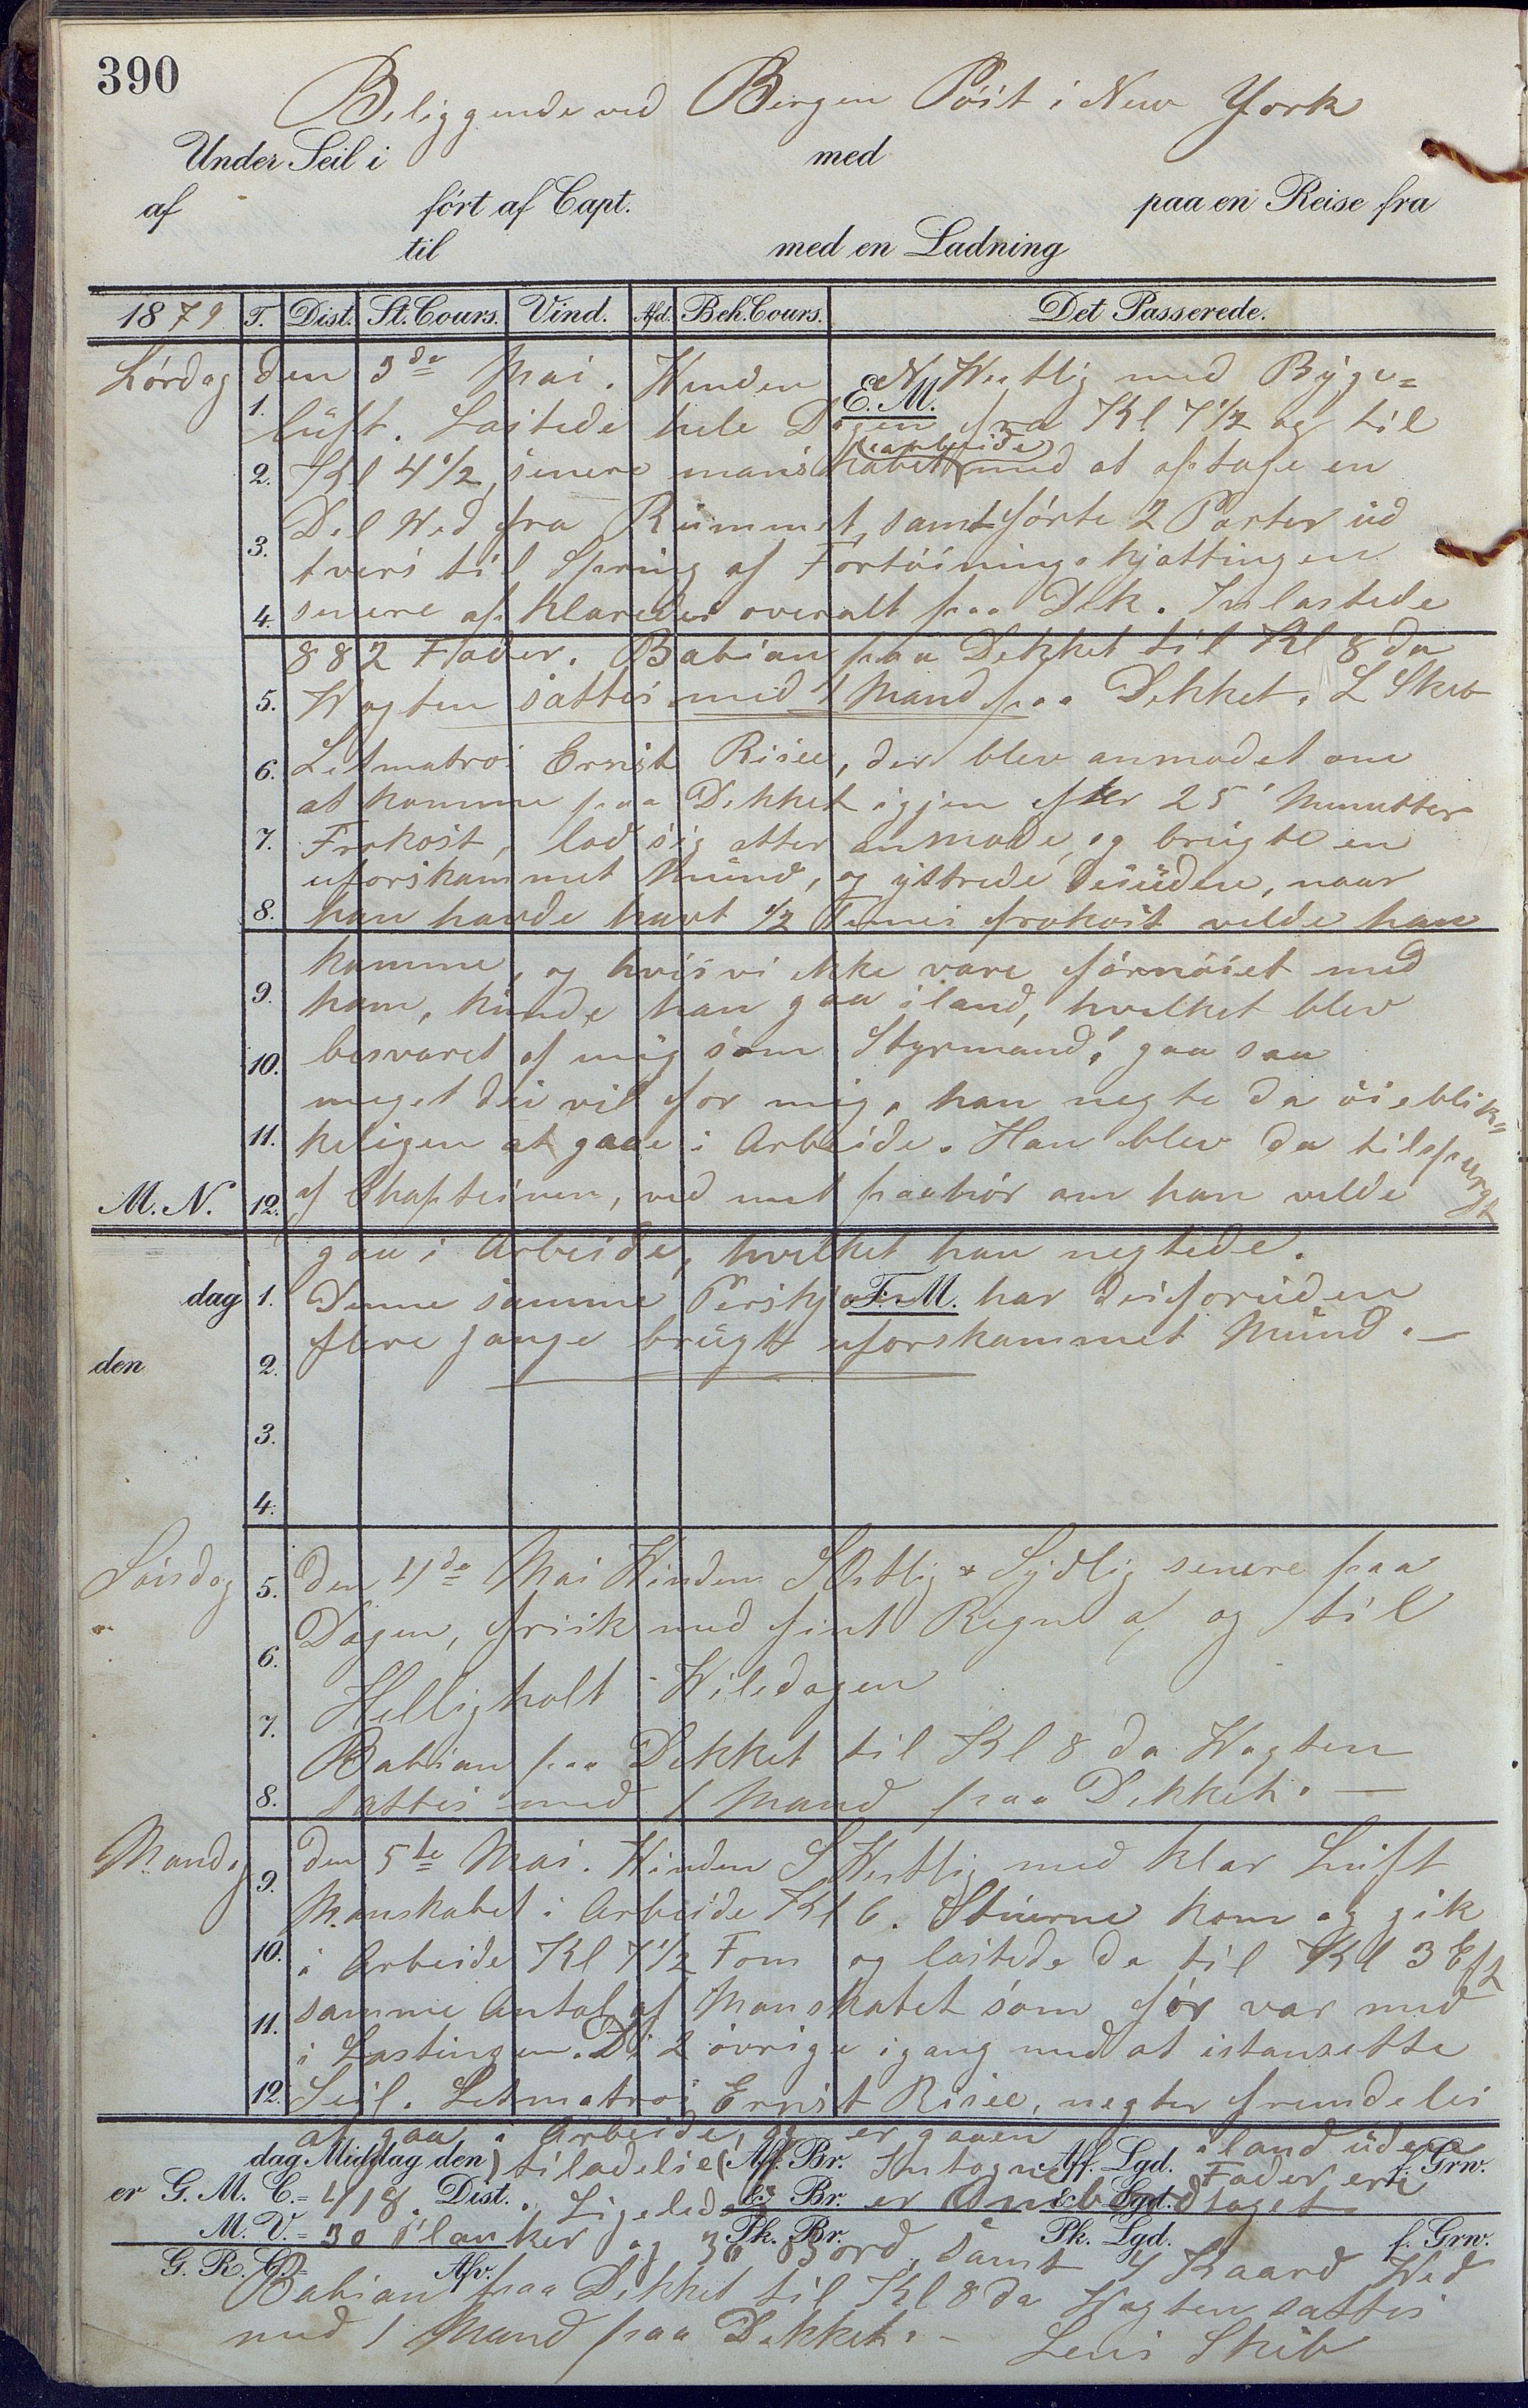 390
Beliggende ved Bergen Pöist i New York
Under Seil i med
af fört af Capt. paa en Reise fra
til med en Ladning
1879 T. Dist. St. Cours. Vind. Afd. Beh. Cours. Det Passerede.
Lördag den 3de Mai. Winden N Westlig med Byge=
E. M.
1. lüft. Lastede hele Dagen fra Kl 7 1/2 og til
2. Kl 4 1/2, senere manskabet (earbeide) med at optage en
Del Ved fra Rümmet, samt förte 2 Parter üd
3. tvers til Spring af Fortöiningskjættingen
4. senere af klaredes overalt paa Dek. Inlastede
882 Fader. Babian paa Dekket til Kl 8 da
5. Wagten sattes med 1 Mand paa Dekket. L Skib
6. Letmatros Ernst Risee, der blev anmodet om
at komme paa Dekket igjen efter 25' Minutter
7. Frokost, lod sig atter anmode, og brügte en
uforskammet Münd, og yttrede desüden, naar
8. han havde havt 1/2 Times frokost vilde han
komme, og hvis vi ikke vare fornöiet med
9. ham, künde han gaa iland, hvilket blev
10. besvaret af mig som Styrmand! gaa saa
meget dü vil for mig, han negte da öieblik=
11. keligen at gaae i Arbeide. Han blev da tilspurgt
M. N. 12. af Chapteinen, ved mit paahör om han vilde
gaa i Arbeide, hvilket han negtede.
dag 1. Denne samme Perskjon har desforüden
F. M.
den 2. flere gange brügt uforskammet Münd.-
3.
4.
Söndag 5. den 4de Mai Winden SOstlig & Sydlig senere paa
6. Dagen, frisk med fint Regn af og til
7. Helligholt Wiledagen
Babian paa Dekket til Kl 8 da Wagten
8. sattes med 1 Mand paa Dekket.-
Mandag 9. den 5te Mai. Winden S Westlig med klar Lüft
Manskabet i Arbeide Kl 6. Stüerne kom og gik
10. i Arbeide Kl 7 1/2 Fom og lastede da til Kl 3 Eft
11. samme Antal af Manskabet som för var med
i Lastingen. De 2 övrige igang med at istansette
12. Seil. Letmatros Ernst Risee, negter fremdeles
at gaa i Arbeide, og er gaaen iland üden
dag Middag den) tiladelse (Aff. Br. Intogne Aff. Lgd. Fader ere f. Grw.
er G. M. C.= 418. Dist. Ligeledes & Br. er Ombordtaget & Lgd.
M. V.= 30 Planker og 30 Bord, samt 4 Kaard Wed
Pk. Br. Pk. Lgd. f. Grw.
G. R. C.= Afv.
Babian paa Dekket til Kl 8 da Wagten sattes
med 1 Mand paa Dekket.- Lens Skib